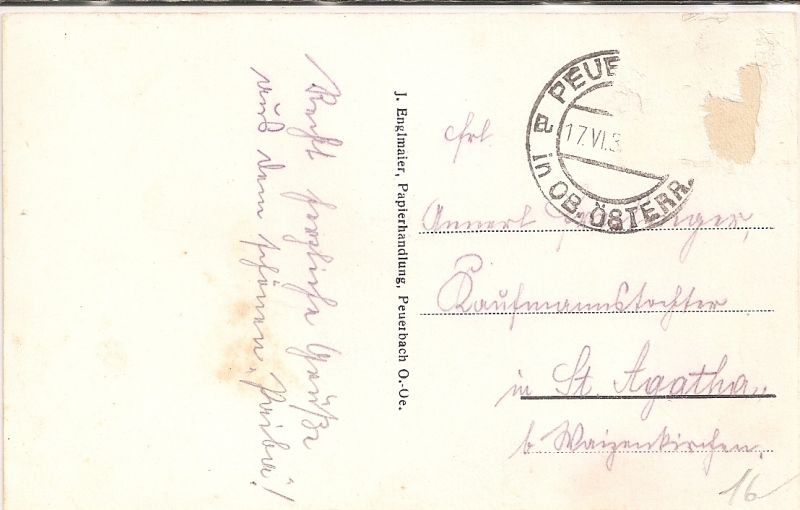 Recht herzliche Grüße
aus dem schönen
J. Englmaier, Papierhandlung, Peuerbach O.-Oe.
PEUE
a 17.VI.3
in OB.ÖSTERR.
Frl.
Annerl
Kaufmannstochter
in St. Agatha,
b. Waizenkirchen.
16